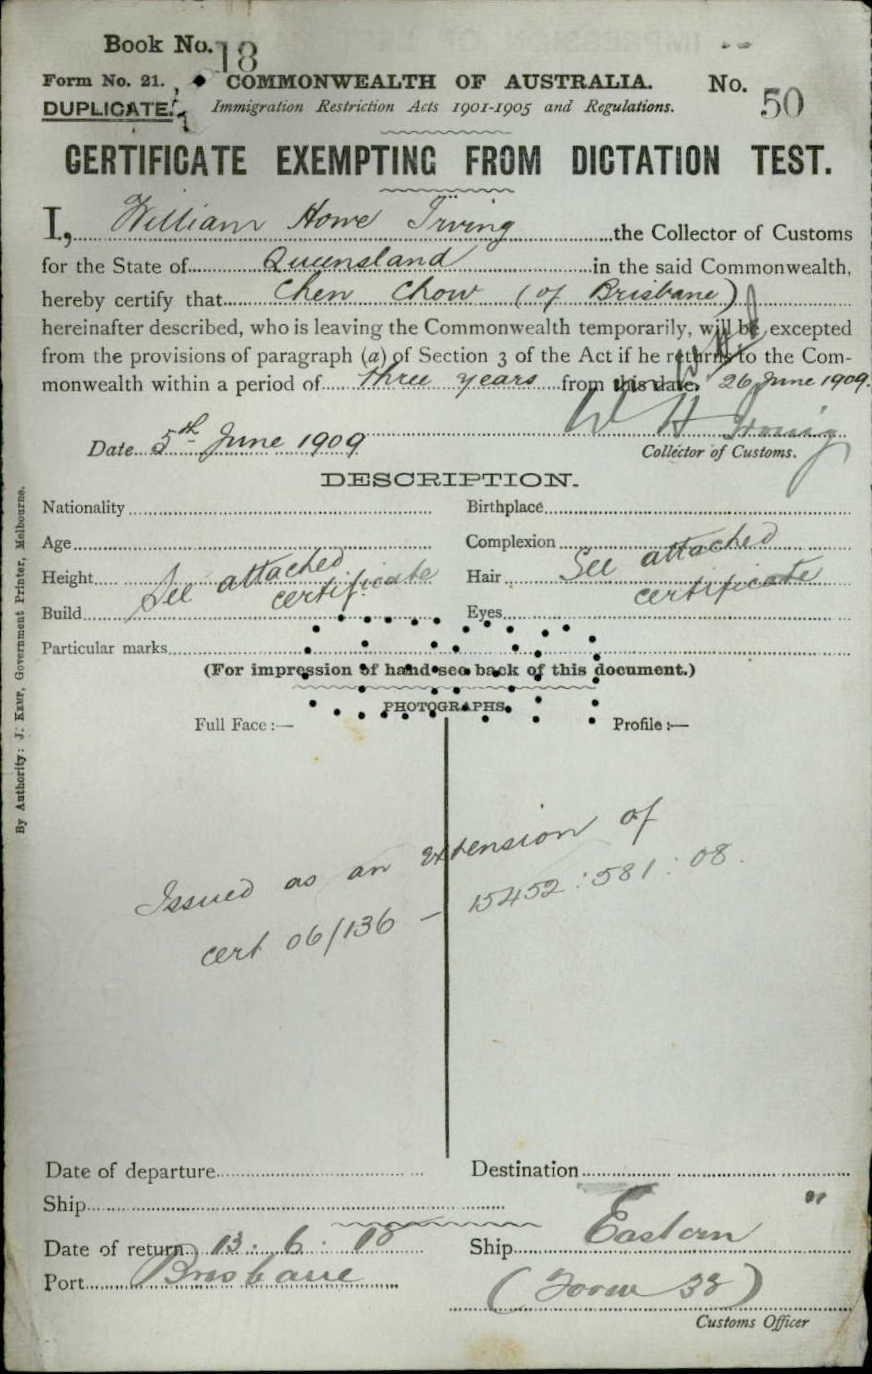 Book No. 18
Form No. 21. COMMONWEALTH OF AUSTRALIA. No. 50
DUPLICATE. Immigration Restriction Acts 1901-1905 and Regulations.
CERTIFICATE EXEMPTING FROM DICTATION TEST.
I, William Howe Irving the Collector of Customs
for the State of Queensland in the said Commonwealth,
hereby certify that Chen Chow (of Brisbane)
hereinafter described, who is leaving the Commonwealth temporarily, will be excepted
from the provisions of paragraph (a) of Section 3 of the Act if he returns to the Com-
monwealth within a period of three years from this date. 26 June 1909.
W H Irving
Date 5th June 1909
Collector of Customs.
DESCRIPTION.
Nationality Birthplace
Age Complexion
Height See attached certificate Hair See attached certificate
Build Eyes
Particular marks
(For impression of hand see back of this document.)
PHOTOGRAPHS.
Full Face:— Profile:—
Issued as an extension of
cert 06/136 - 15452:581:08.
Date of departure Destination
Ship
Date of return 13.6. Ship Eastern
Port Brisbane (Form 32)
Customs Officer
By Authority: J. Kemp, Government Printer, Melbourne.